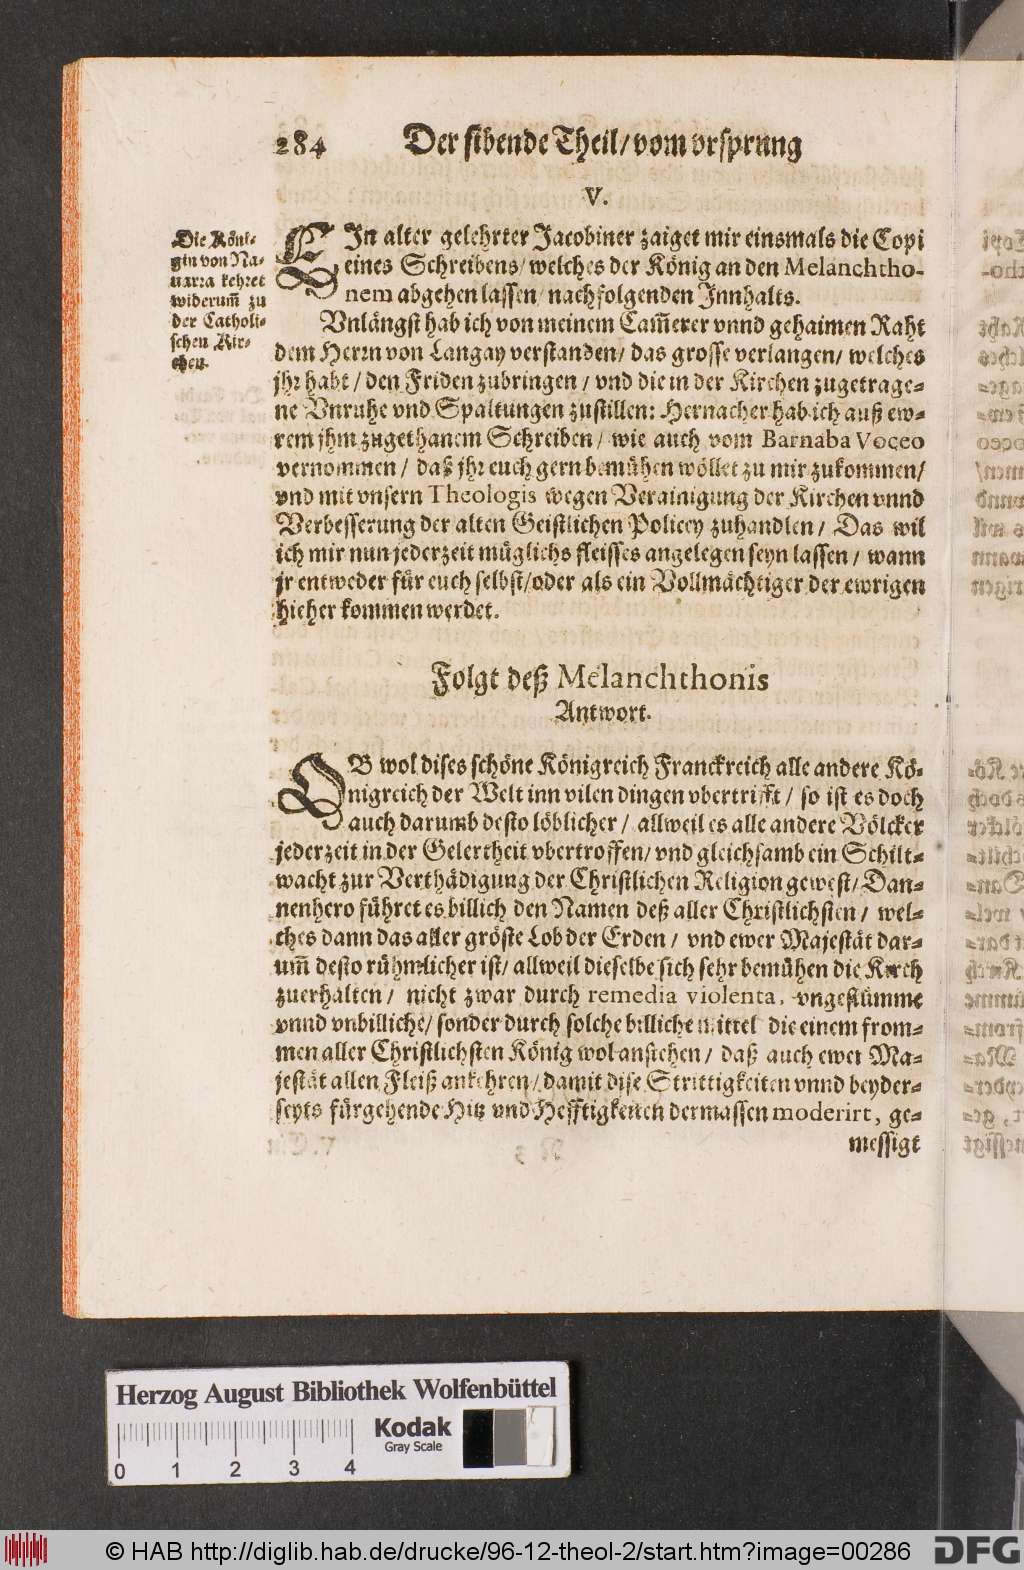 284 Der sibende Theil/ vom vrsprung
V.
Die Köni-
gin von Na-
uarra kehret
widerum̃ zu
der Catholi-
schen Kir-
chen.
EIn alter gelehrter Jacobiner zaiget mir einsmals die Copi
eines Schreibens/ welches der König an den Melanchtho-
nem abgehen lassen/ nachfolgenden Innhalts.
Vnlängst hab ich von meinem Cam̃erer vnnd gehaimen Raht
dem Herrn von Langay verstanden/ das grosse verlangen/ welches
jhr habt/ den Friden zubringen/ vnd die in der Kirchen zugetrage-
ne Vnruhe vnd Spaltungen zustillen: Hernacher hab ich auß ew-
rem jhm zugethanem Schreiben/ wie auch vom Barnaba Voceo
vernommen/ daß jhr euch gern bemühen wöllet zu mir zukommen/
vnd mit vnsern Theologis wegen Verainigung der Kirchen vnnd
Verbesserung der alten Geistlichen Policey zuhandlen/ Das wil
ich mir nun jederzeit müglichs fleisses angelegen seyn lassen/ wann
jr entweder für euch selbst/ oder als ein Vollmächtiger der ewrigen
hieher kommen werdet.
Folgt deß Melanchthonis
Antwort.
OB wol dises schöne Königreich Franckreich alle andere Kö-
nigreich der Welt inn vilen dingen vbertrifft/ so ist es doch
auch darumb desto löblicher/ allweil es alle andere Völcker
jederzeit in der Gelertheit vbertroffen/ vnd gleichsamb ein Schilt-
wacht zur Verthädigung der Christlichen Religion gewest/ Dan-
nenhero führet es billich den Namen deß aller Christlichsten/ wel-
ches dann das aller gröste Lob der Erden/ vnd ewer Majestät dar-
um̃ desto rühmlicher ist/ allweil dieselbe sich sehr bemühen die Kirch
zuerhalten/ nicht zwar durch remedia violenta, vngestümme
vnnd vnbilliche/ sonder durch solche billiche mittel die einem from-
men aller Christlichsten König wol anstehen/ daß auch ewer Ma-
jestät allen Fleiß ankehren/ damit dise Strittigkeiten vnnd beyder-
seyts fürgehende Hitz vnd Hefftigkeiten dermassen moderirt, ge-
messigt
Herzog August Bibliothek Wolfenbüttel
Kodak
Gray Scale
0 1 2 3 4
© HAB http://diglib.hab.de/drucke/96-12-theol-2/start.htm?image=00286
DFG